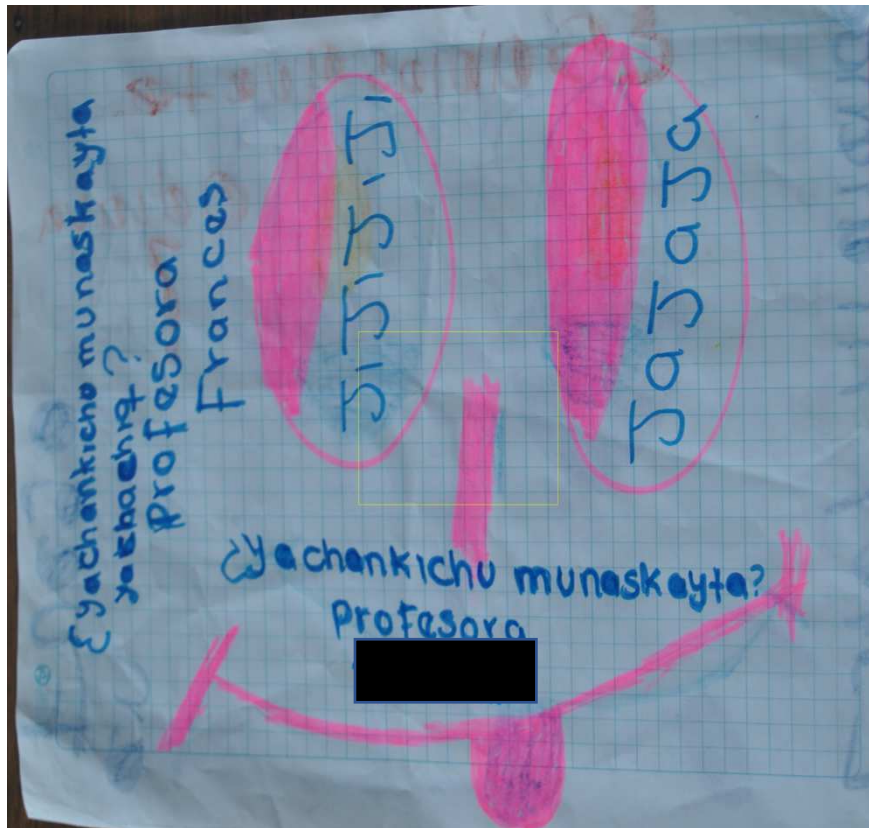 ¿yachankicho munaskayta
yachachiq?
Profesora
Frances
JiJiJiJi
JaJaJaJa
¿yachankichu munaskayta?
Profesora